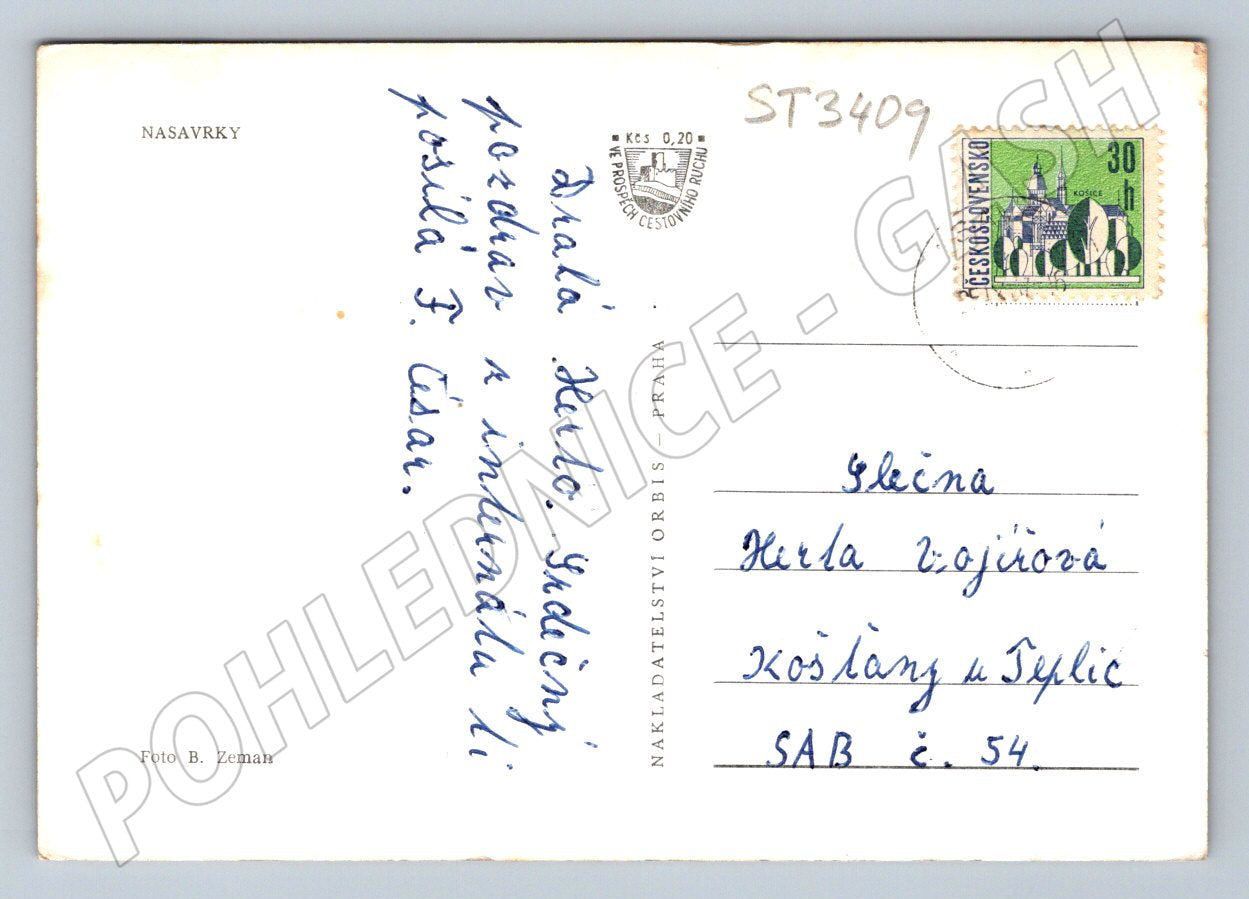 NASAVRKY
ST3409
Kčs 0,20
VE PROSPĚCH CESTOVNÍHO RUCHU
ČESKOSLOVENSKO
30
h
KOŠICE
Drahá Herto. Srdečný
pozdrav z internátu ti
posílá F. Císar.
NAKLADATELSTVÍ ORBIS – PRAHA
Slečna
Herta Vojířová
Košťany u Teplic
SAB č. 54.
Foto B. Zeman
POHLEDNICE - GASH